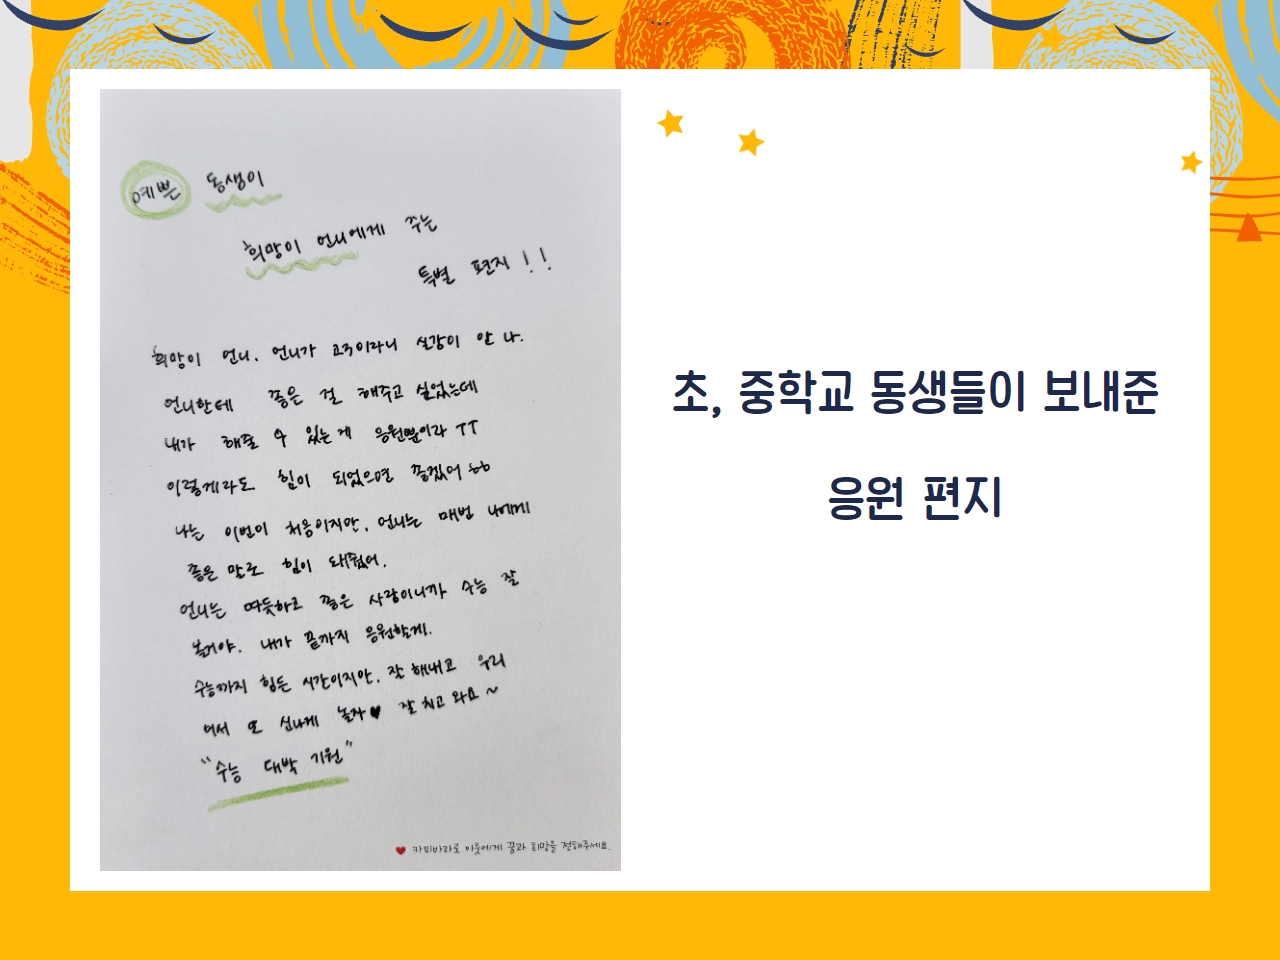 예쁜 동생이
희망이 언니에게 주는
특별 편지!!
희망이 언니. 언니가 고3이라니 실감이 안 나.
언니한테 좋은 걸 해주고 싶었는데
내가 해줄 수 있는게 응원뿐이라 ㅜㅜ
이렇게라도 힘이 되었으면 좋겠어 ㅎㅎ
나는 이번이 처음이지만, 언니는 매번 나에게
좋은 말로 힘이 돼줬어.
언니는 따듯하고 좋은 사람이니까 수능 잘
볼거야. 내가 끝까지 응원할게.
수능까지 힘든 시간이지만, 잘 해내고 우리
어서 또 신나게 놀자♥ 잘 치고 와요~
"수능 대박 기원"
카피바라로 이웃에게 꿈과 희망을 전해주세요.
초, 중학교 동생들이 보내준
응원 편지